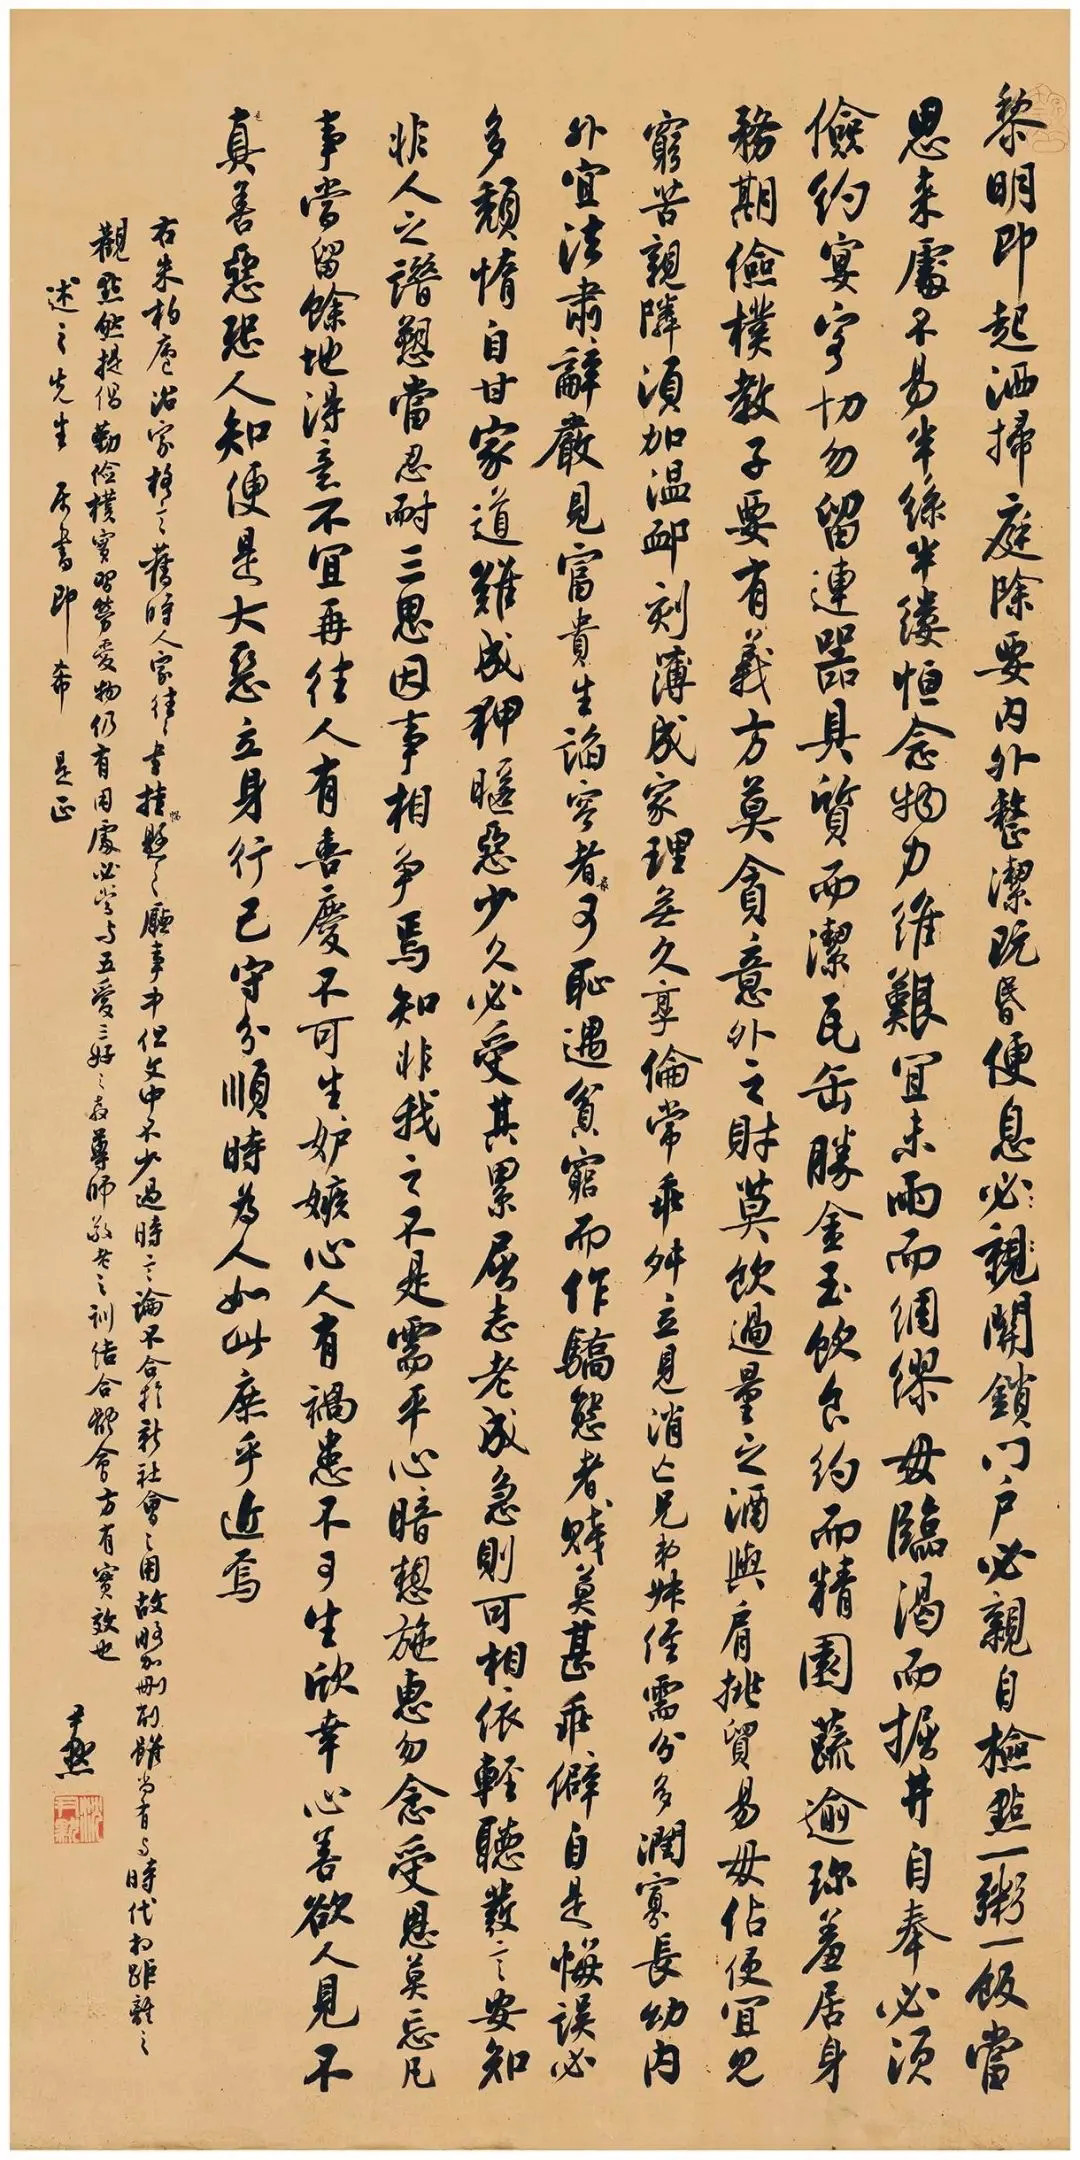 黎明即起洒掃庭除要内外整潔既昏便息必親關鎖门户必親自檢點一粥一飯當
思来處不易半絲半縷恒念物力維艱宜未雨而綢繆毋臨渴而掘井自奉必須
儉約宴客切勿留連器具質而潔瓦缶勝金玉飲食約而精園蔬逾珍羞居身
務期儉樸教子要有義方莫貪意外之財莫飲過量之酒與肩挑貿易毋佔便宜見
窮苦親隣須加温卹刻薄成家理無久享倫常乖舛立見消亡兄弟叔侄需分多潤寡長幼内
外宜法肅辭嚴見富貴生諂容者最可恥遇貧窮而作驕態者賤莫甚乖僻自是悔誤必
多頽惰自甘家道難成狎暱惡少久必受其累屈志老成急則可相依輕聽發言安知
非人之譖愬當忍耐三思因事相争焉知非我之不是需平心暗想施惠勿念受恩莫忘凡
事當留餘地得意不宜再往人有喜慶不可生妒嫉心人有禍患不可生欣幸心善欲人見不
是真善惡恐人知便是大惡立身行己守分順時為人如此庶乎近焉
右朱柏廬治家格言舊時人家往往書挂懸之廳事中但文中不少過時言論不合於新社會之用故略加删削雖尚有与時代相距離之
觀點然提倡勤儉樸實習勞愛物仍有用處必當与五愛三好之教尊師敬老之訓結合體會方有實效也
述之先生属書即希 是正
尹默
沈尹默